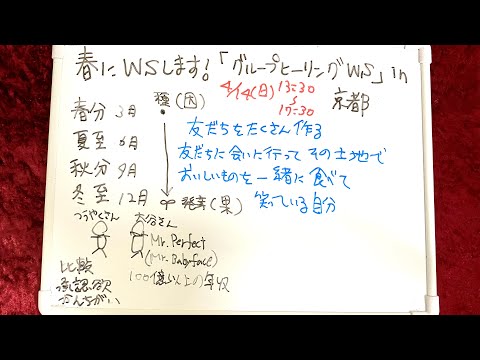 春にWSします!「グループヒーリングWS」in
京都
4/14(日) 13:30
〜
17:30
春分 3月 種(因)
夏至 6月
秋分 9月
冬至 12月 発芽(果)
友だちをたくさん作る
友だちに会いに行って その土地で
おいしいものを一緒に食べて
笑っている自分
つうやくさん 大谷さん
Mr. Perfect
(Mr. Babyface)
100億以上の年収
比較
承認欲
かんちがい